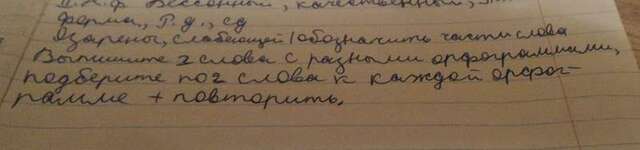 Н.ф. Бессонный, качественный,
форма, Р.д., ед
Озарены, слабеющей / обозначить части слова
Выпишите 2 слова с разными орфограммами,
подберите по 2 слова к каждой орфог-
рамме + повторить.